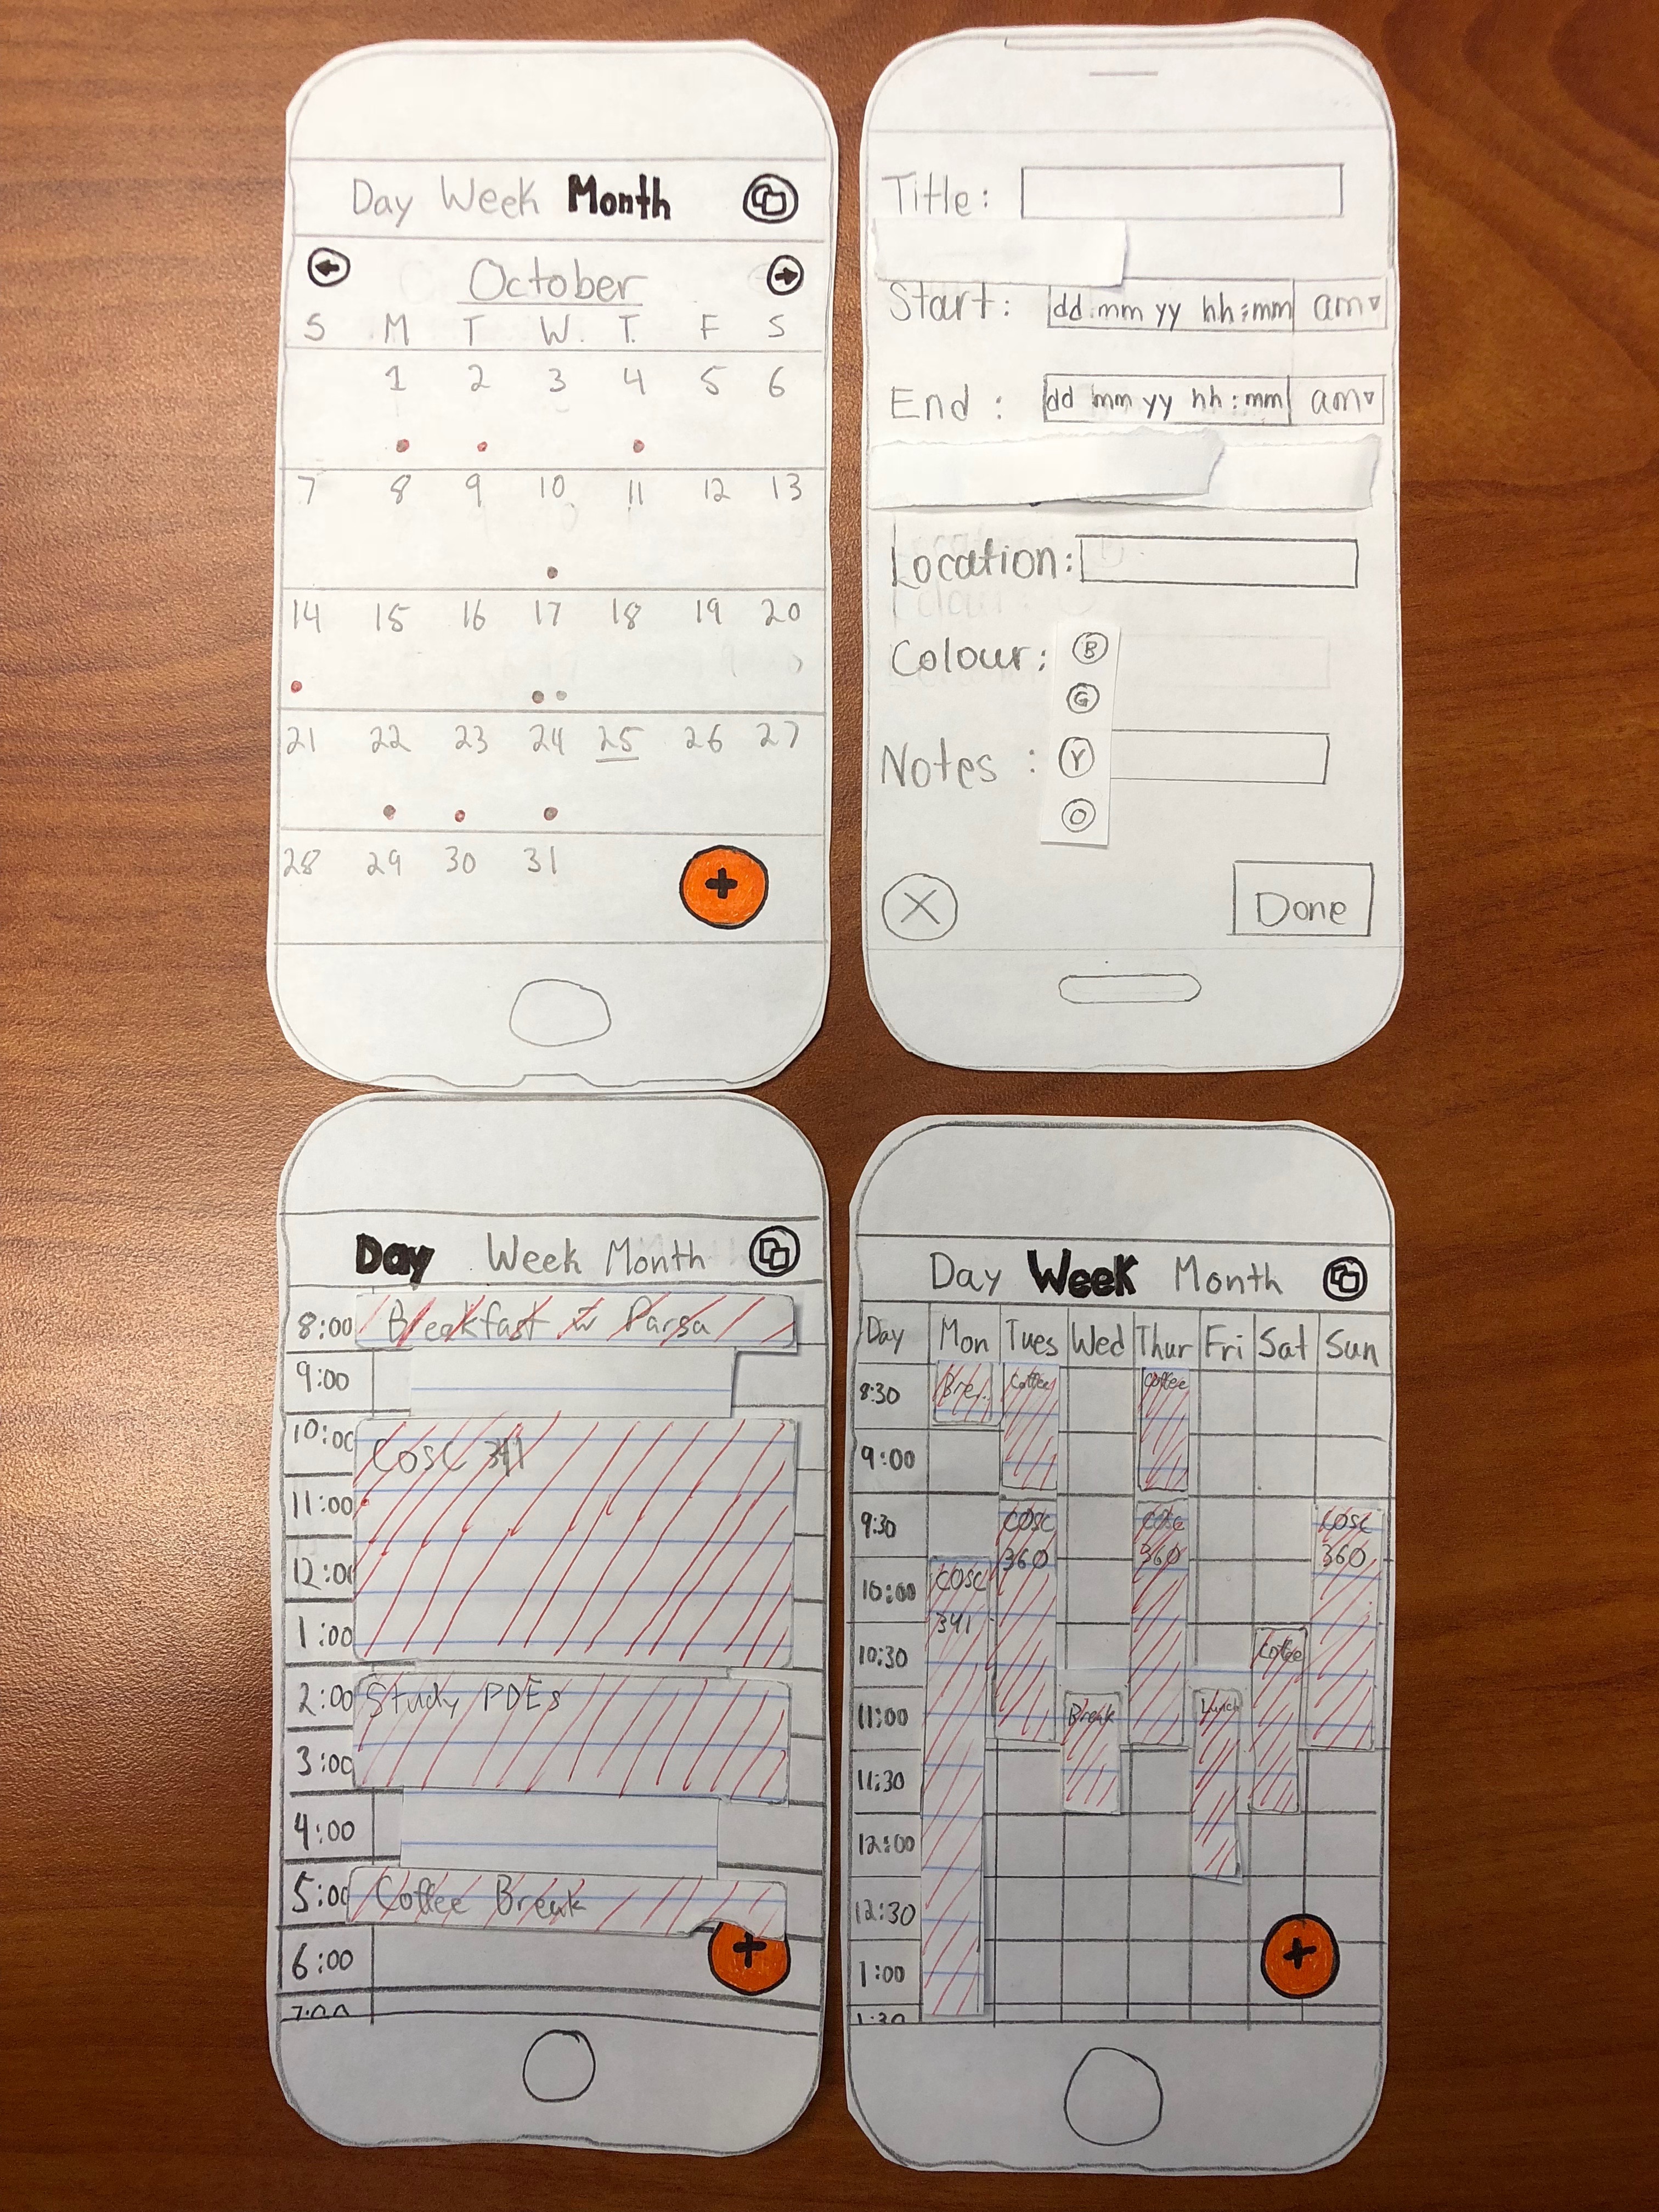 Day Week Month
October
S M T W. T. F S
1 2 3 4 5 6
7 8 9 10 11 12 13
14 15 16 17 18 19 20
21 22 23 24 25 26 27
28 29 30 31
+
Title:
Start: dd mm yy hh:mm am
End: dd mm yy hh:mm am
Location:
Colour: B
G
Notes : Y
O
X Done
Day Week Month
8:00 Breakfast w Parsa
9:00
10:00 COSC 341
11:00
12:00
1:00
2:00 Study PDEs
3:00
4:00
5:00 Coffee Break
6:00
+
7:00
Day Week Month
Day Mon Tues Wed Thur Fri Sat Sun
8:30 Bre.. Coffee Coffee
9:00
9:30 COSC COSC COSC
360 360 360
10:00 COSC
341
10:30 Coffee
11:00 Break Lunch
11:30
12:00
12:30
+
1:00
1:30